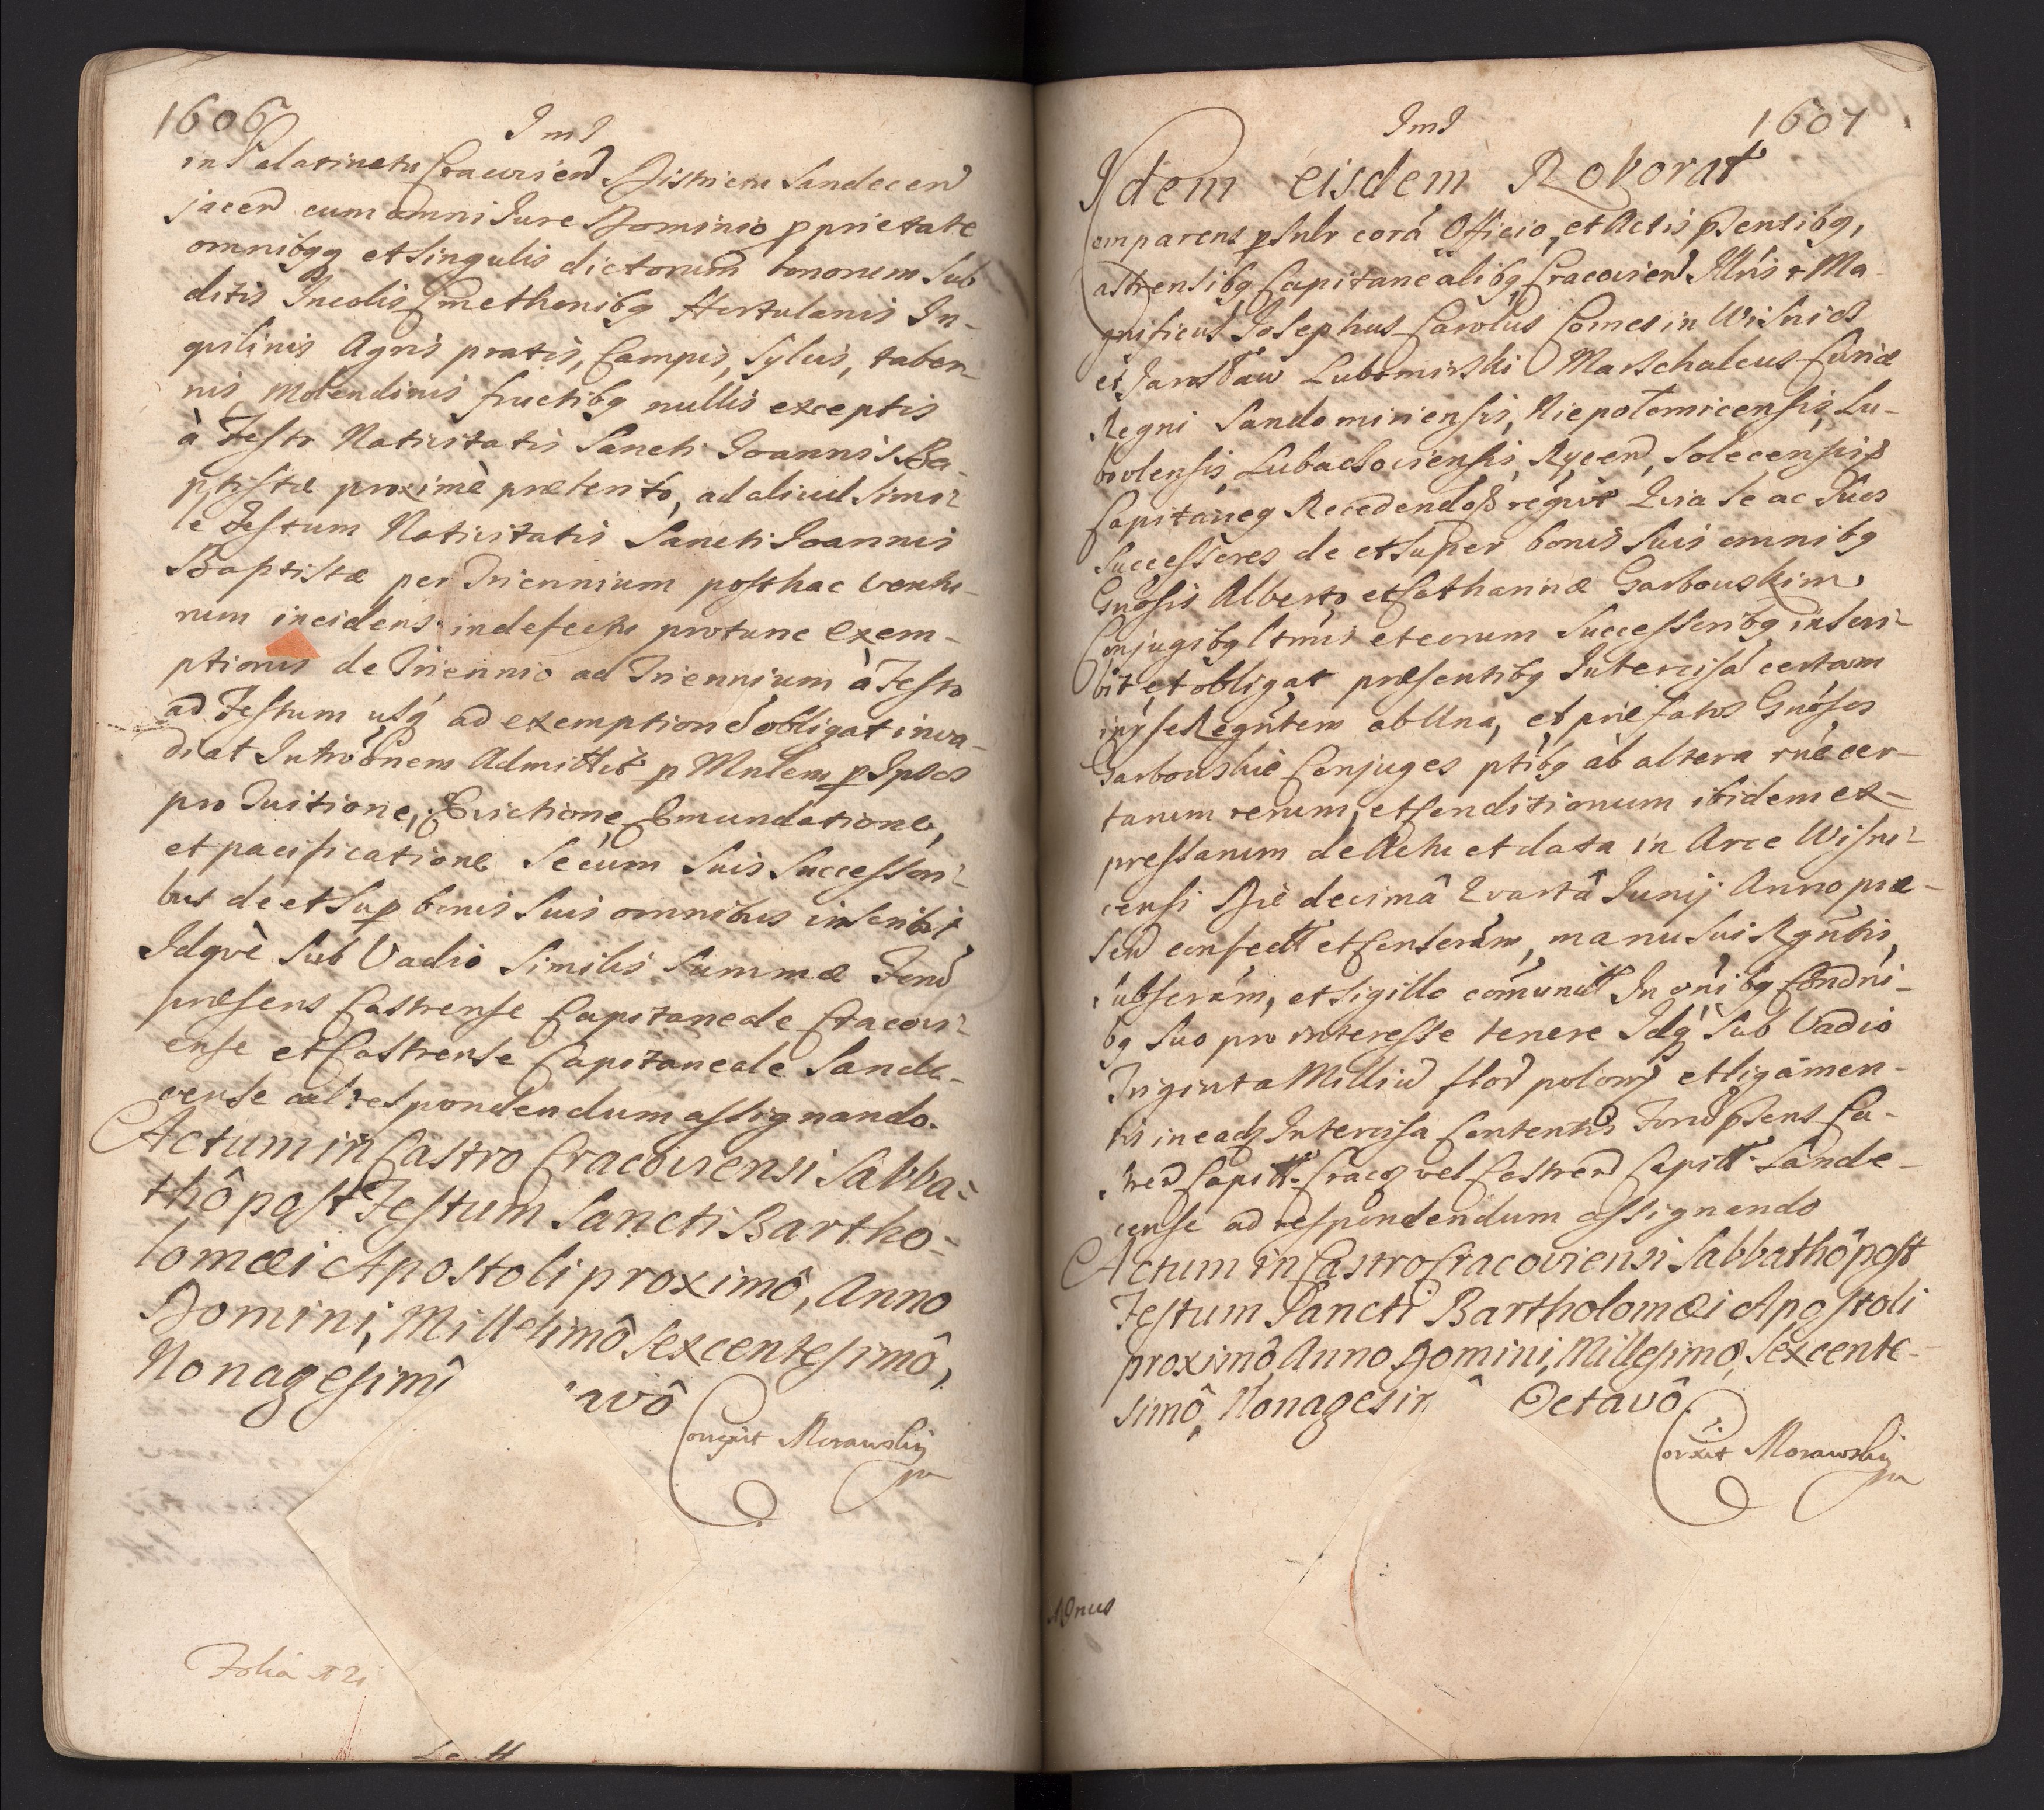 1606
in Palatinatu Cracovien Districtu Sandecen
jacen cum omni Jure Dominio pprietate
omnibqq et singulis dictorum bonorum Sub
ditis Incolis Cmethonibq Hortulanis In-
quilinis Agris pratis, Campis, Sylvis, taber-
nis Molendinis fructibq nullis exceptis
à Festo Nativitatis Sancti Joannis Ba-
ptistæ proximè præterito, ad aliud Simi-
le Festum Nativitatis Sancti Joannis
Baptistæ per Triennium posthac ventu-
rum incidens indefectu protunc exem-
ptionis de Triennio ad Triennium à Festo
ad Festum usq ad exemptione obligat inva-
diat Introonem Admittit p Mnlem p Ipsos
pro Tuitione, Evictione, Emundatione,
et pacificatione Secum Suis Successori-
bus de et sup bonis Suis omnibus inscribit
Idqvè Sub Vadio Similis Summæ Fono
præsens Castrense Capitaneale Cracovi-
ense et Castrense Capitaneale Sande-
cense ad respondendum assignando.
Actum in Castro Cracoviensi Sabba-
thô post Festum Sancti Bartho-
lomæi Apostoli proximô, Anno
Domini, Millesimô Sexcentesimô,
Nonagesimô avô
Correxit Morawsky
Folia
1607
Idem eisdem Roborat
Comparens psnlr corâ Officio, et Actis psentibq,
Castrensibq Capitanealibq Cracovien Illris & Ma-
gnificus Josephus Carolus Comes in Wisnicz
et Jarosław Lubomirski Marschalcus Curiæ
Regni Sandomiriensis, Niepolomicensis, Lu-
bovlensis, Lubaczoviensis, Rycen, Solecensisq
Capitaneq Recedendoq reqvit Qvia Se ac Suos
Successores de et super bonis Suis omnibq
Gnosis Alberto et Catharinæ Garbowskim
Conjugibq ltmis et eorum Successoribq inscri-
bit, et obligat præsentibq Intercisâ certam
inter se Regntem ab Una, et præfatos Gnosos
Garbowskie Conjuges ptibq ab altera rne cer-
tarum rerum, et Conditionum ibidem ex-
pressarum de Actu et data in Arce Wisni-
censi Die decimâ Qvartâ Junij Anno præ-
sen confectt et Conserám, manu Sui Rgntis,
Subscrám, et Sigillo cõmunitt In onibq Condni-
bq Suo pro interesse tenere Idq Sub Vadio
Triginta Milliu flor polony et ligámen-
tis in eadz Intercisa Contentis Foroq psens Ca-
stren Capitt. Cracoz vel Castren Capitt. Sande-
cense ad respondendum assignando
Actum in Castro Cracoviensi Sabbathô post
Festum Sancti Bartholomæi Apostoli
proximô, Anno Domini, Millesimô, Sexcente-
simô, Nonagesimô Octavô
Corxit Morawsky